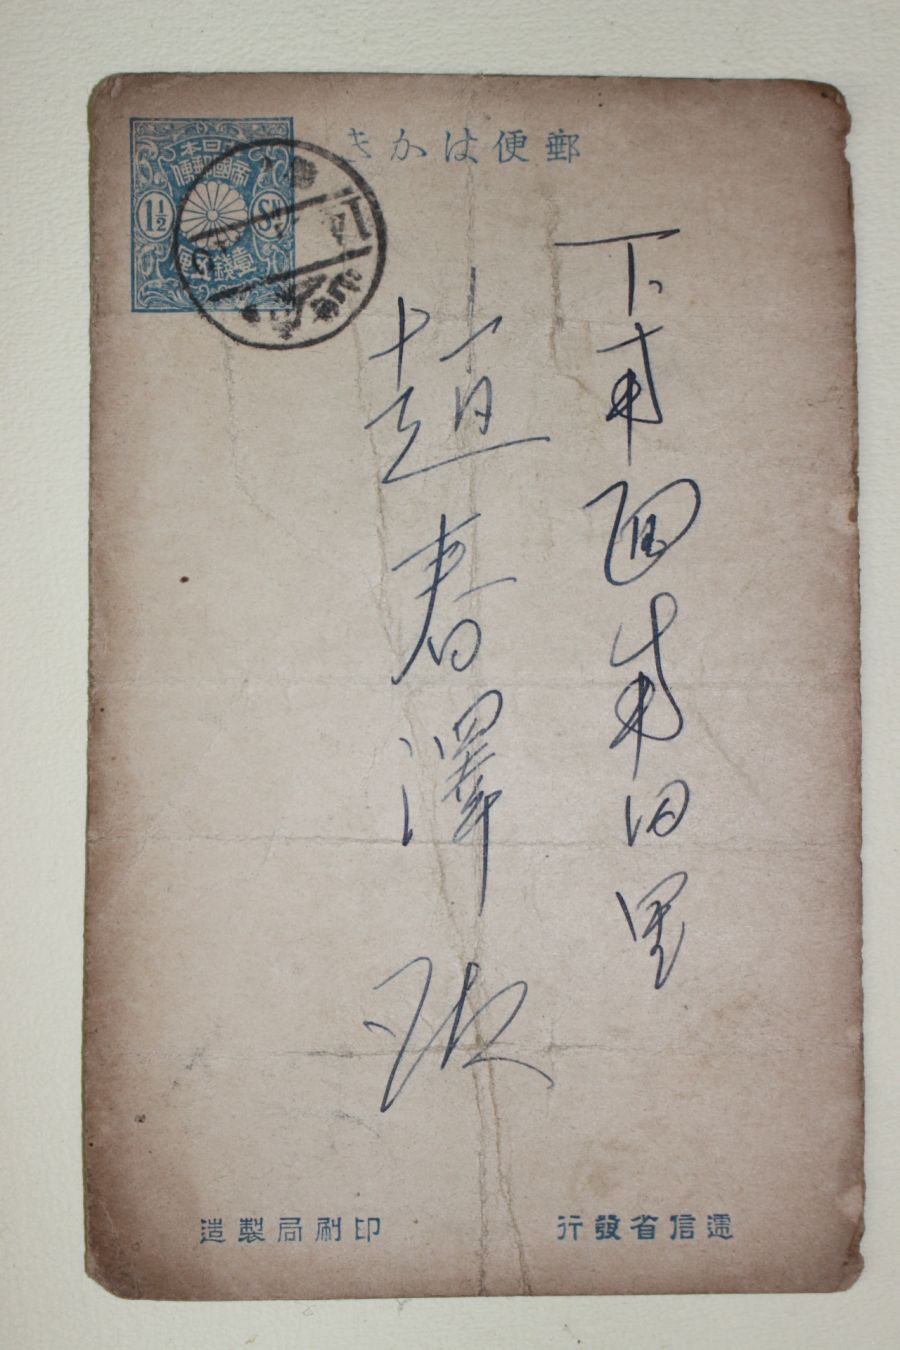 郵便はかき
日本
帝國郵便
1½ SN
壹錢五厘
下 面 里
趙春澤 殿
遞信省發行
印刷局製造